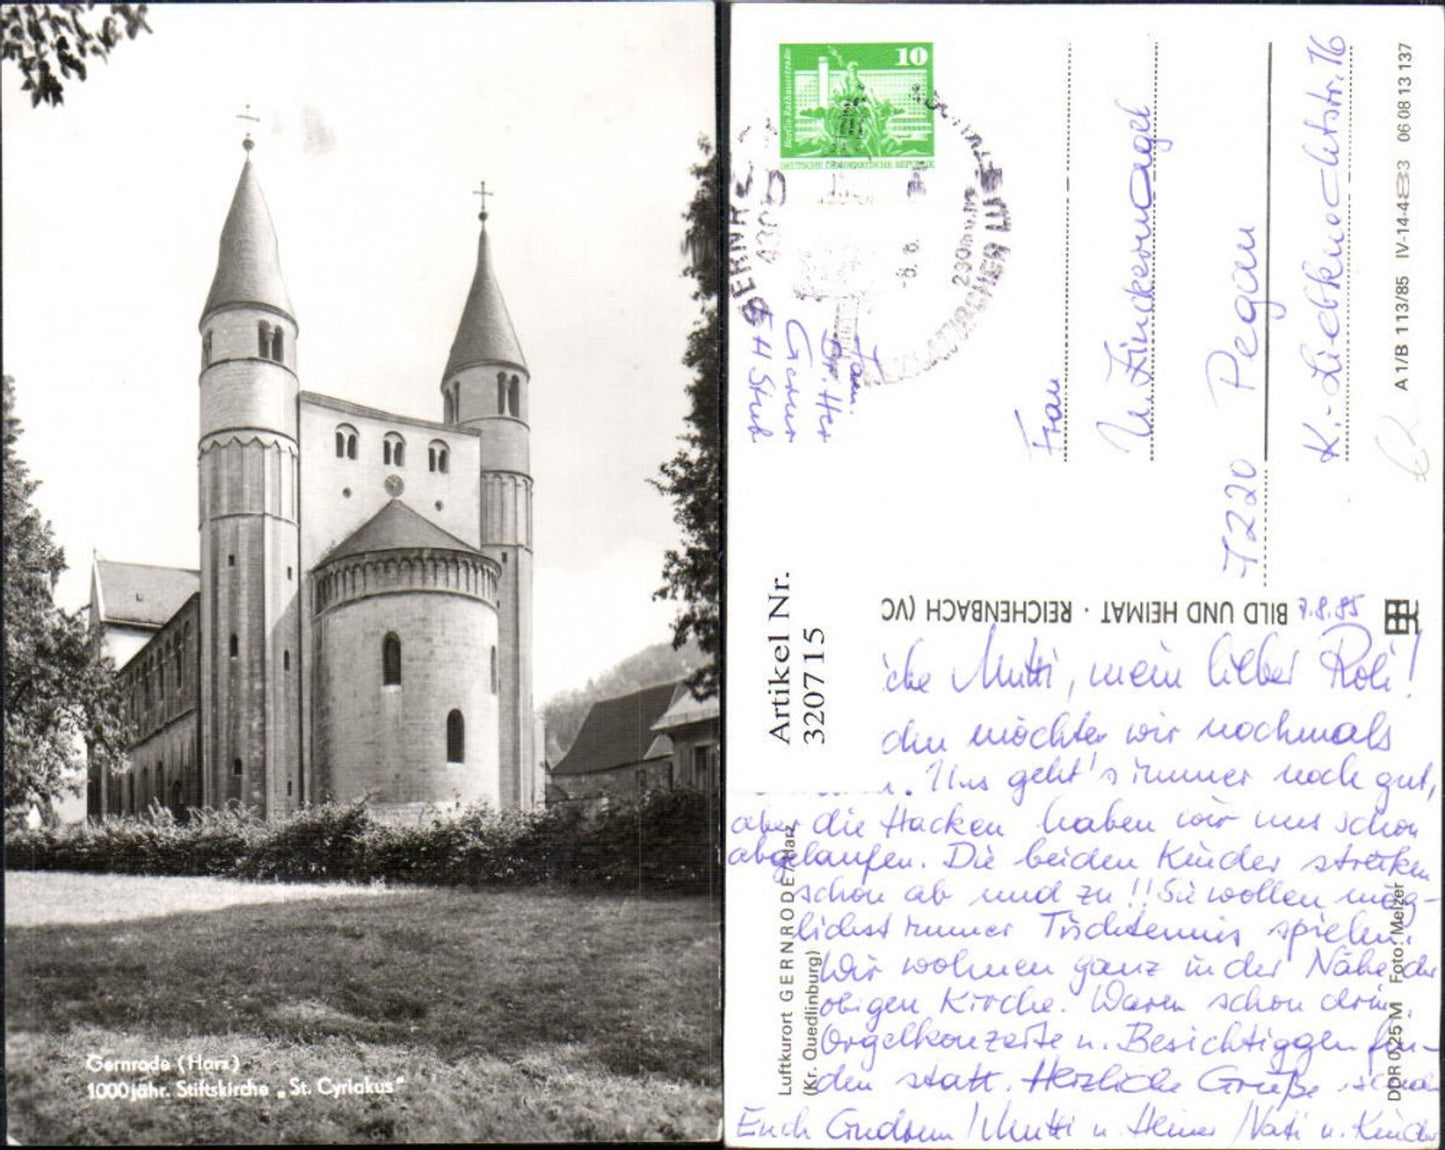 Gernrode (Harz)
1000jähr. Stiftskirche „St. Cyriakus"
10
Berlin Rathausstraße
DEUTSCHE DEMOKRATISCHE REPUBLIK
Fam.
Dr. Her
Gernr
FH Stub
Frau
U. Finckernagel
7220 Pegau
K.-Liebknechtstr. 16
A 1/B 113/85 IV-14-483 06 08 13 137
Artikel Nr.
3207715
BILD UND HEIMAT · REICHENBACH (VC
7.8.85
iche Mutti, mein lieber Roli!
den möchten wir nochmals
Uns geht's immer noch gut,
aber die Hacken haben wir uns schon
abgelaufen. Die beiden Kinder streiken
schon ab und zu!! Sie wollen mög-
lichst immer Tischtennis spielen.
Wir wohnen ganz in der Nähe der
obigen Kirche. Waren schon drin.
Orgelkonzerte u. Besichtiggen fin-
den statt. Herzliche Grüße
Euch Gudrun / Mutti u. Heiner / Vati u. Kinder
Luftkurort GERNRODE/Harz
(Kr. Quedlinburg)
DDR 0,25 M Foto: Melzer